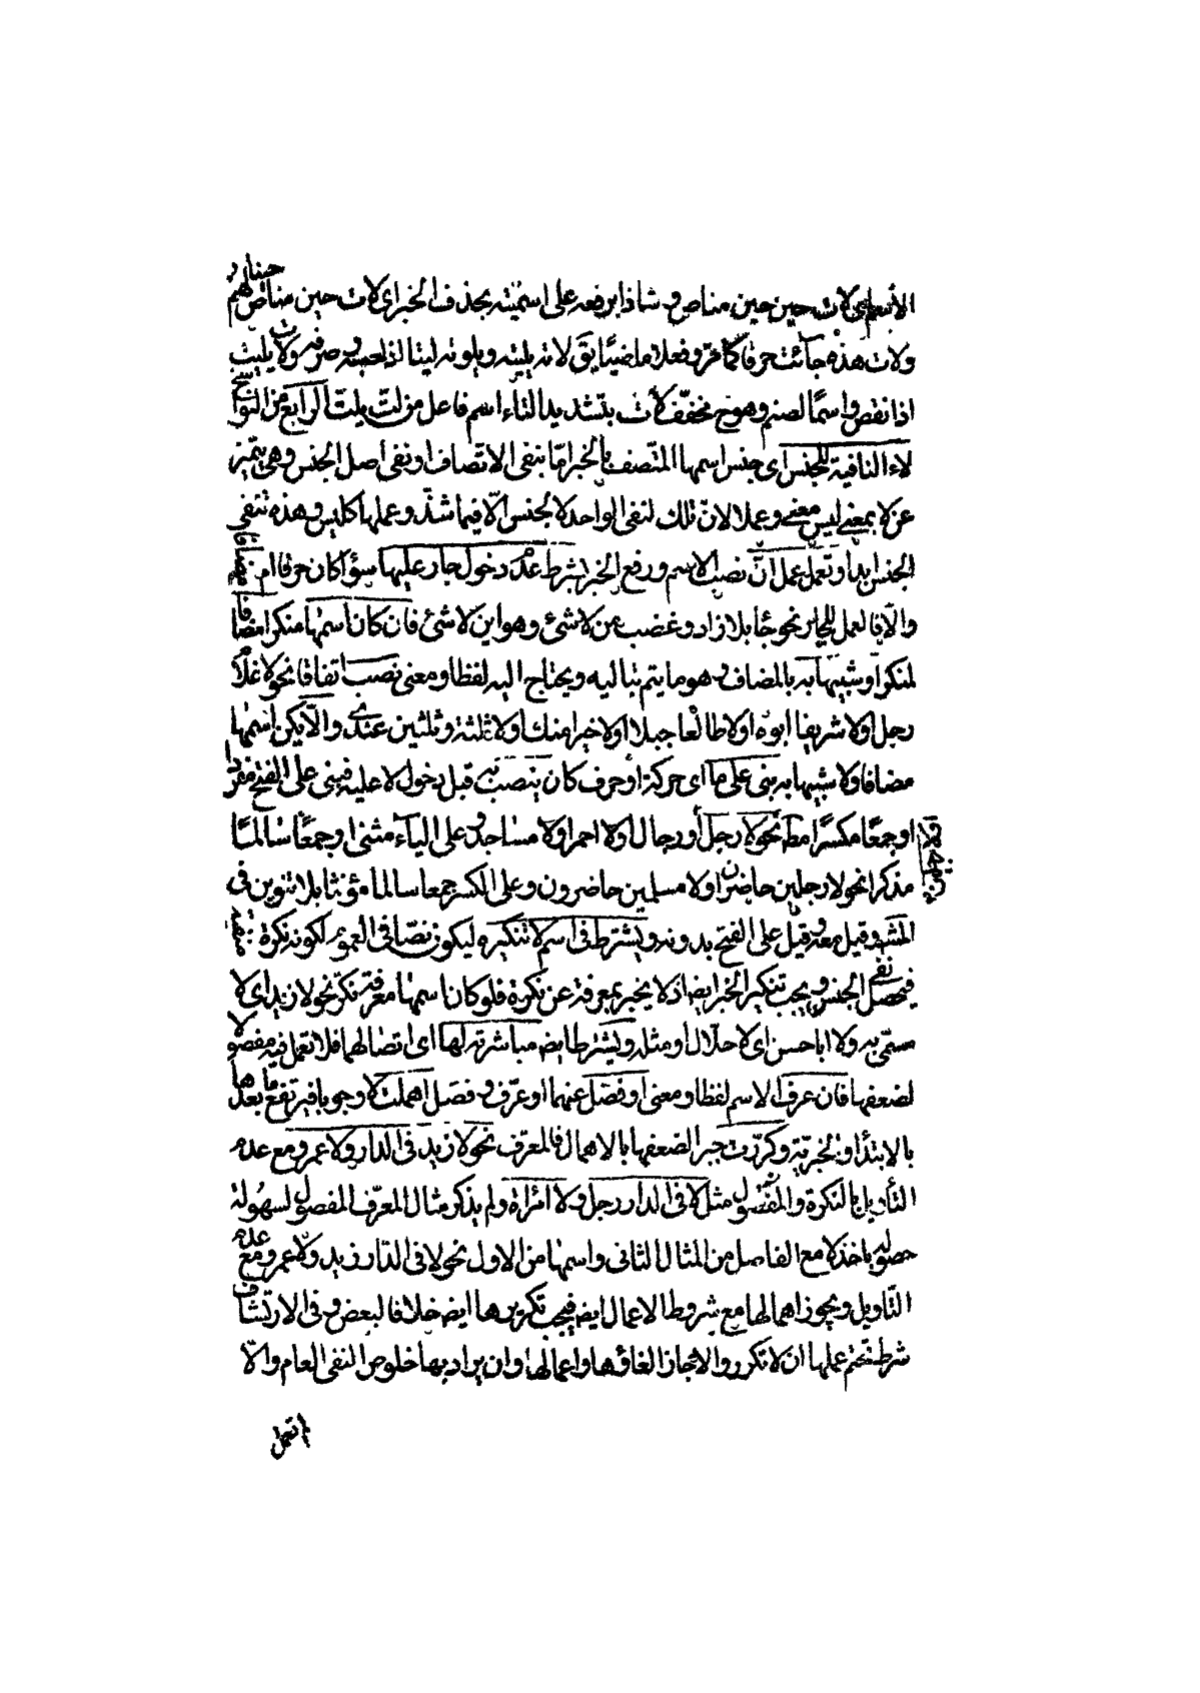 الاسم ای لات حین حین مناص و شاذا برفعه علی اسمیته بحذف الخبر ای لات حین مناص لهم
ولات هذه جائت حرفا کما مر و فعلا ماضیا یق لاته یلیته و یلوته لیتا اذا حبسه و صرفه ولات یلیت
اذا نقص و اسما لصنم وهو مخفف لات بتشدید التاء اسم فاعل من لت یلت الرابع من النواسخ
لاء النافیة للجنس ای جنس اسمها المتصف بالخبر اما بنفی الاتصاف او نفی اصل الجنس وهی تتمیز
عن لا بمعنی لیس معنی و عملا لان تلک لنفی الواحد لا الجنس الا فیما شذ و عملها کلیس و هذه تنفی
الجنس ابدا و تعمل عمل ان نصب الاسم و رفع الخبر بشرط عدم دخول جار علیها سواء کان حرفا ام
والا فالعمل للجار نحو جئت بلا زاد و غضب من لا شئ و هو ابن لا شئ فان کان اسمها منکرا مضافا
لمنکر او شبیها به بالمضاف و هو ما یتم بتالیه و یحتاج الیه لفظا و معنی نصب اتفاقا نحو لا غلام
رجل او لا شریفا ابوه او لا طالعا جبلا او لا خیرا منک او لا ثلثة و ثلثین عندی و الا یکن اسمها
مضافا ولا شبیها به بنی علی ما ای حرکة او حرف کان ینصب به قبل دخول لا علیه فبنی علی الفتح مفردا
او جمعا مکسرا مط نحو لا رجل او رجال او لا احمر او لا مساجد و علی الیاء مثنی او جمعا سالما
مذکرا نحو لا رجلین حاضران او لا مسلمین حاضرون و علی الکسر جمعا سالما مؤنثا بلا تنوین فی
المشهور و قیل معه و قیل علی الفتح بدونه و یشترط فی اسم لا تنکیره لیکون نصا فی العموم لکونه نکرة
فیحصل نفی الجنس و یجب تنکیر الخبر ایضا اذ لا یخبر بمعرفة عن نکرة فلو کان اسمها معرفة نکر نحو لا زید ای لا
مسمی به ولا ابا حسن ای لا حلال او مثله و یشترط ایض مباشرته لها ای اتصالها فلا تعمل فیه مفصولا
لضعفها فان عرف الاسم لفظا و معنی او فصل عنها او عرف و فصل اهملت لا وجوبا فیرتفع ما بعدها
بالابتدا او الخبریة و کررت جبرا لضعفها بالاهمال فالمعرف نحو لا زید فی الدار ولا عمرو مع عدم
التأویل بالنکرة و المفصول مثل لا فی الدار رجل ولا امرأة ولم یذکر مثال المعرف المفصول لسهولة
حصوله باخذ لا مع الفاصل من المثال الثانی و اسمها من الاول نحو لا فی الدار زید ولا عمرو مع عدم
التاویل و یجوز اهمالها مع شروط الاعمال ایض فیجب تکریرها ایض خلافا لبعض و فی الارتشاف
شرط تحتم عملها ان لا تکرر و الا جاز الغاؤها و اعمالها و ان یراد بها خلوص النفی العام و الا